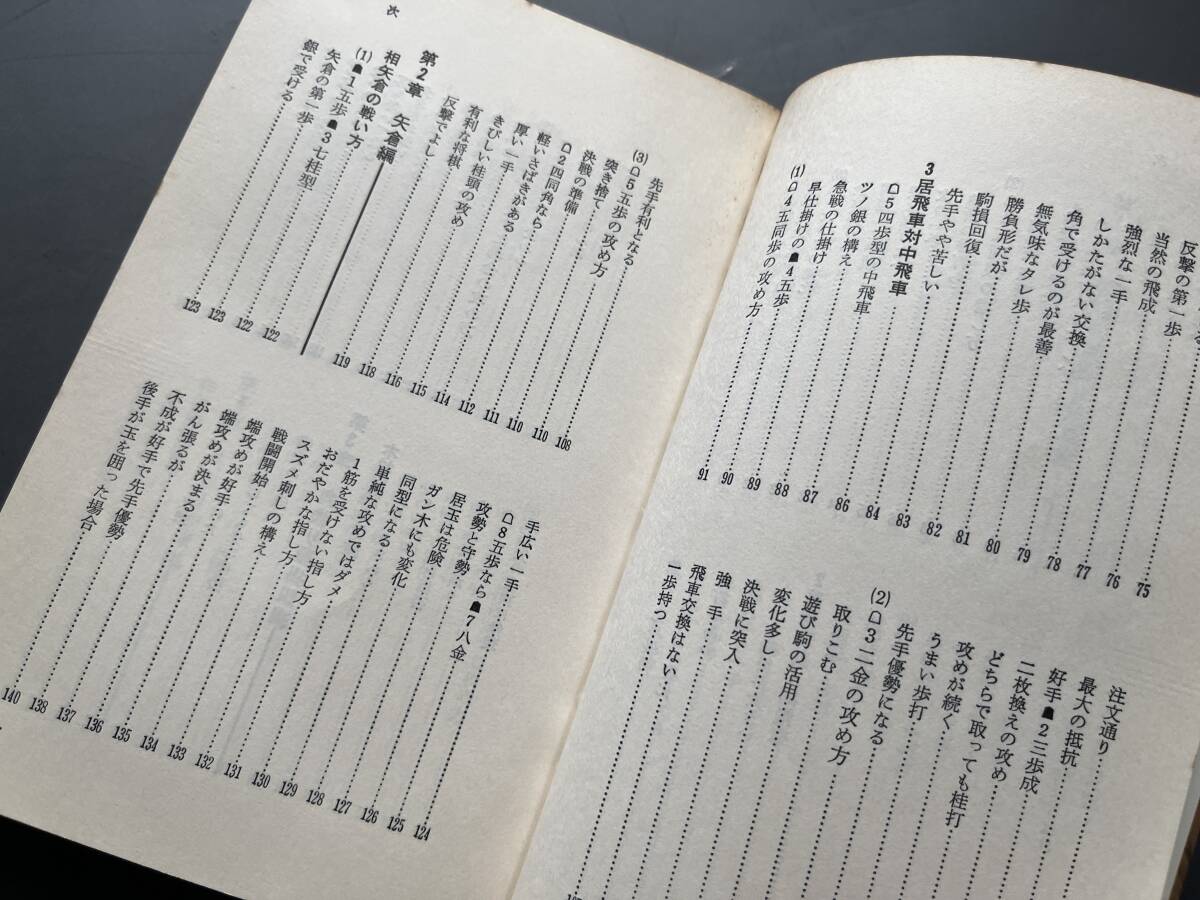 反撃の第一歩……75
当然の飛成……76
強烈な一手……77
しかたがない交換……78
角で受けるのが最善……79
無気味なタレ歩……80
勝負形だが……81
駒損回復……82
先手やや苦しい……83
3 居飛車対中飛車
☖5四歩型の中飛車……84
ツノ銀の構え……86
急戦の仕掛け……87
早仕掛けの☗4五歩……88
(1) ☖4五同歩の攻め方……89
90
91
注文通り
最大の抵抗
好手☗2三歩成
二枚換えの攻め
どちらで取っても桂打
攻めが続く
うまい歩打
先手優勢になる
(2) ☖3二金の攻め方
取りこむ
遊び駒の活用
変化多し
決戦に突入
強手
飛車交換はない
一歩持つ
次
先手有利となる……108
(3) ☖5五歩の攻め方……110
突き捨て……110
決戦の準備……111
☖2四同角なら……112
軽いさばきがある……114
厚い一手……115
きびしい桂頭の攻め……116
有利な将棋……118
反撃でよし……119
第2章 矢倉編
相矢倉の戦い方……122
(1) ☗1五歩☗3七桂型……122
矢倉の第一歩……123
銀で受ける……123
手広い一手……124
☖8五歩なら☗7八金……125
攻勢と守勢……126
居玉は危険……127
ガン木にも変化……128
同型になる……129
単純な攻めではダメ……130
1筋を受けない指し方……131
おだやかな指し方……132
スズメ刺しの構え……133
戦闘開始……134
端攻めが好手……135
端攻めが決まる……136
がん張るが……137
不成が好手で先手優勢……138
後手が玉を囲った場合……140